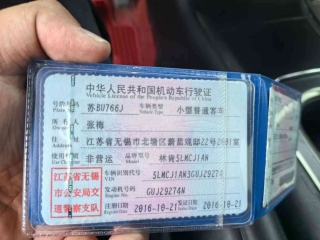 中华人民共和国机动车行驶证
Vehicle License of the People's Republic of China
苏BU766J 车辆类型 小型普通客车
张梅
江苏省无锡市北塘区蔚蓝观邸22号2601室
非营运 品牌型号 林肯5LMCJ1AN
江苏省无锡市公安局交通警察支队
车辆识别代号
VIN
5LMCJ1AN3GUJ29274
发动机号码 GUJ29274N
注册日期 2016-10-21 发证日期 2016-10-21